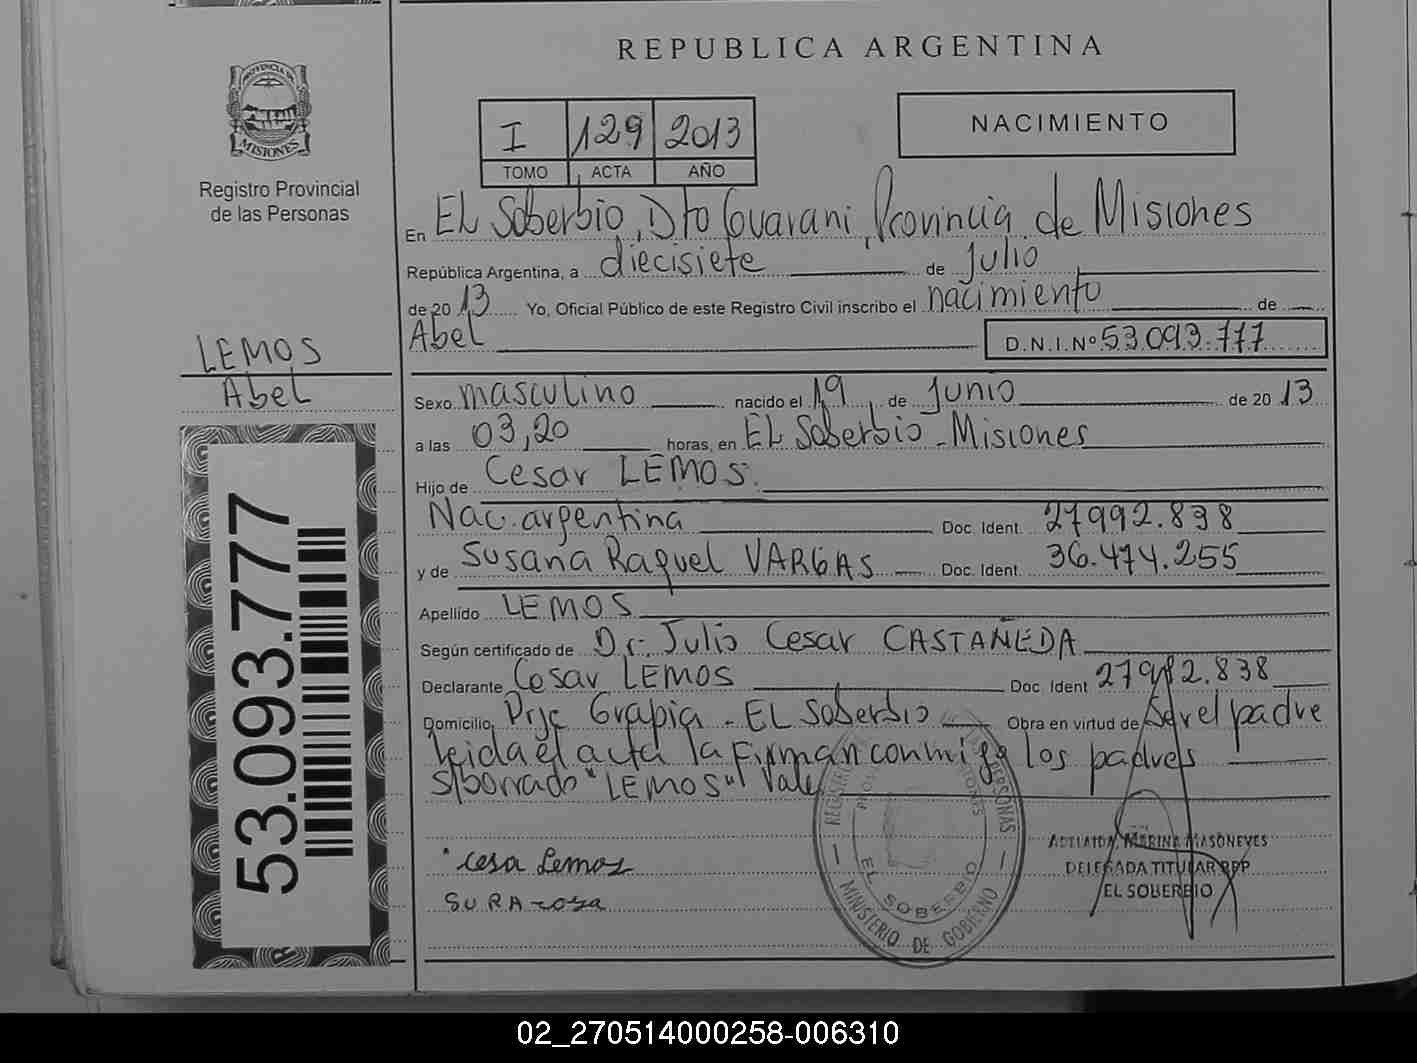 REPUBLICA ARGENTINA
PROVINCIA DE
MISIONES
Registro Provincial
de las Personas
I 129 2013
TOMO ACTA AÑO
NACIMIENTO
En EL Soberbio, Dto Guarani, Provincia de Misiones
República Argentina, a diecisiete de Julio
de 20 13 Yo, Oficial Público de este Registro Civil inscribo el nacimiento de
Abel D.N.I.Nº 53.093.777
LEMOS
Abel
53.093.777
Sexo masculino nacido el 19 de Junio de 20 13
a las 03,20 horas, en EL Soberbio - Misiones
Hijo de Cesar LEMOS.
Nac. argentina Doc. Ident. 27992.838
y de Susana Raquel VARGAS Doc. Ident. 36.474.255
Apellido LEMOS
Según certificado de Dr. Julio Cesar CASTAÑEDA
Declarante Cesar LEMOS Doc Ident 27982.838
Domicilio Prje Grapia - EL Soberbio Obra en virtud de Ser el padre
leida el acta la Firman conmigo los padres
S/borrado "LEMOS" Vale
cesa Lemos
REGISTRO PERSONAS
EL SOBERBIO
MINISTERIO DE GOBIERNO
ADELAIDA MARINA MASONEVES
DELEGADA TITULAR RPP
EL SOBERBIO
02_270514000258-006310